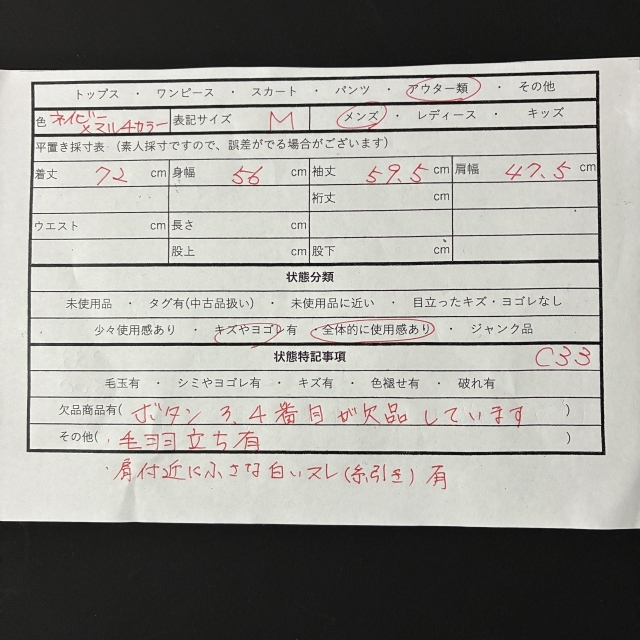 トップス ・ ワンピース ・ スカート ・ パンツ ・ アウター類 ・ その他
色 ネイビー×マルチカラー 表記サイズ M メンズ ・ レディース ・ キッズ
平置き採寸表（素人採寸ですので、誤差がでる場合がございます）
着丈 72 cm 身幅 56 cm 袖丈 59.5 cm 肩幅 47.5 cm
裄丈
ウエスト cm 長さ cm cm
股上 cm 股下 cm
状態分類
未使用品 ・ タグ有(中古品扱い) ・ 未使用品に近い ・ 目立ったキズ・ヨゴレなし
少々使用感あり ・ キズやヨゴレ有 ・ 全体的に使用感あり ・ ジャンク品
状態特記事項 C33
毛玉有 ・ シミやヨゴレ有 ・ キズ有 ・ 色褪せ有 ・ 破れ有
欠品商品有( ボタン 3,4番目が欠品しています )
その他( ・毛羽立ち有 )
・肩付近に小さな白いスレ(糸引き)有